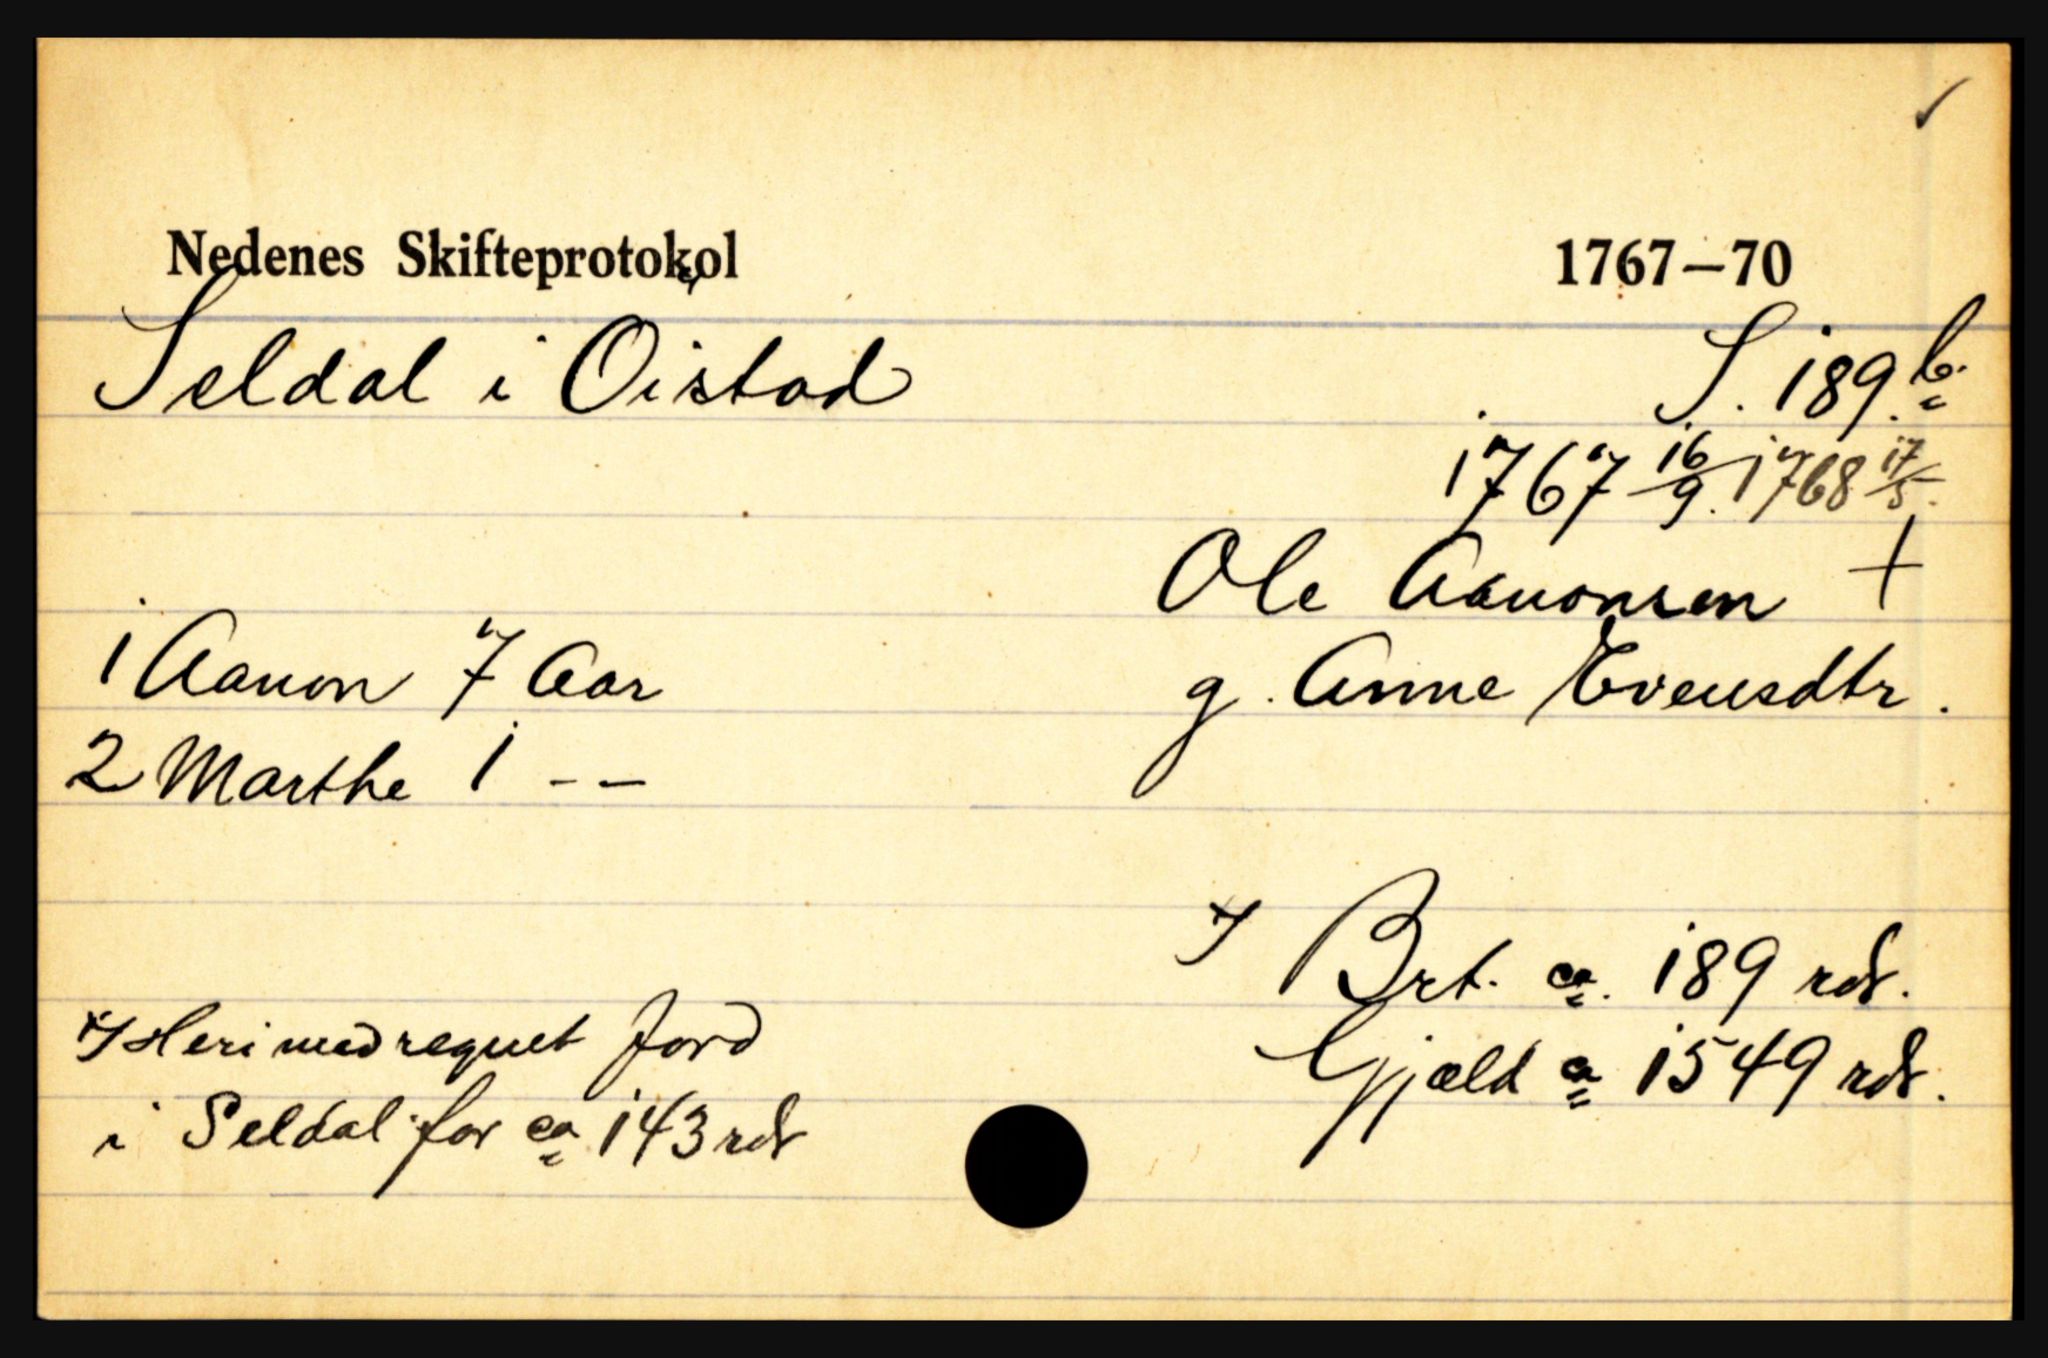 Nedenes Skifteprotokol 1767—70
Seldal i Øistad S. 189 b.
1767 16/9. 1768 17/5.
Ole Aanonsen +
1 Aanon 7 Aar g. Anne Evensdtr.
2 Marthe 1 – –
Brt. ca. 189 rdr.
Heri medregnet Jord Gjæld ca 1549 rdr.
i Seldal for ca 143 rdr